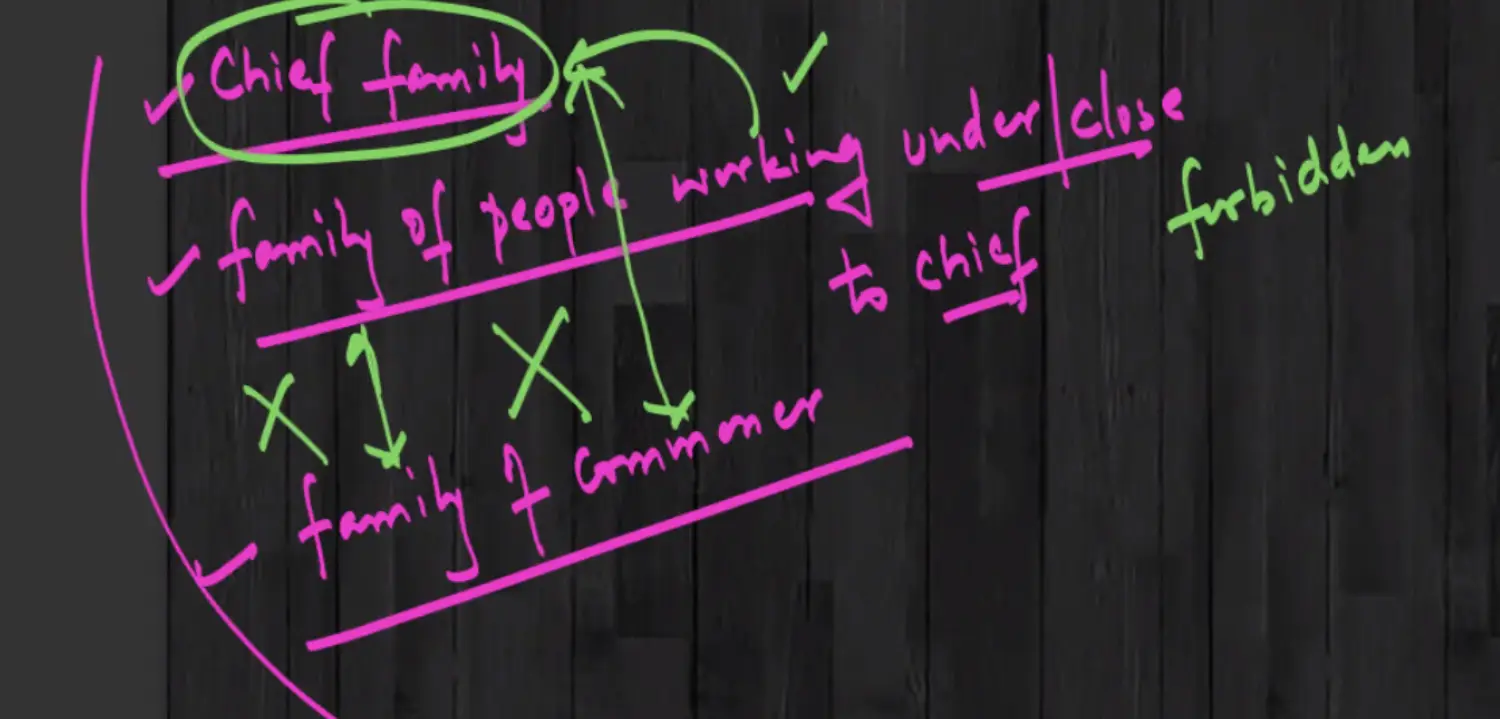 Chief family
family of people working under/close
to chief
forbidden
family of commoner